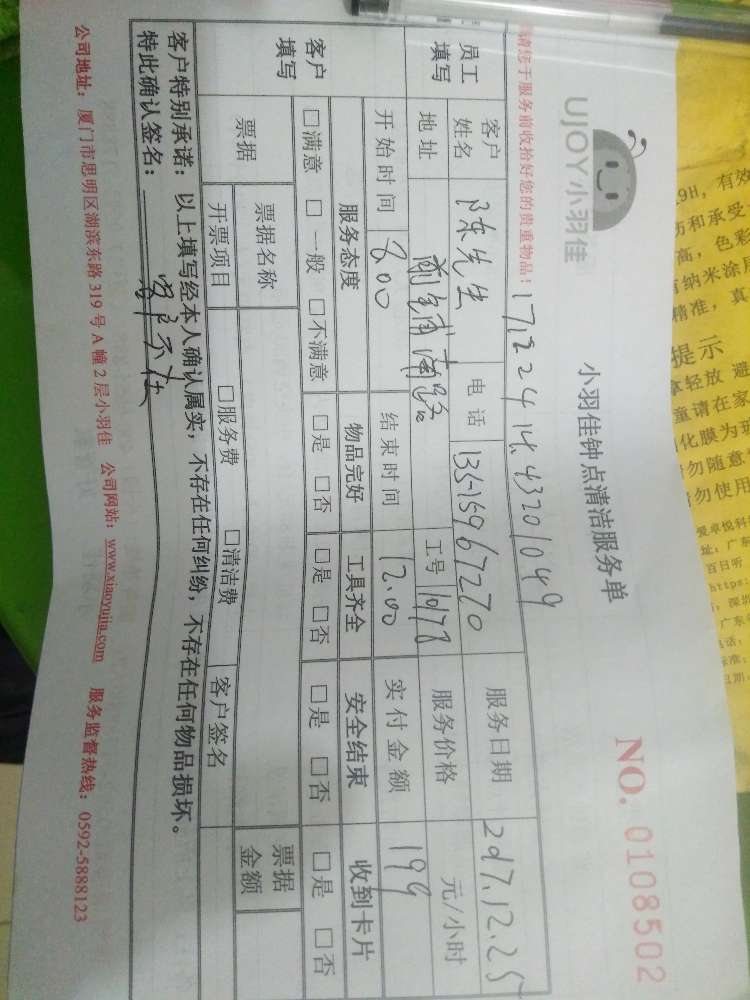 UJOY小羽佳
小羽佳钟点清洁服务单
NO. 0108502
请您于服务前收拾好您的贵重物品！
1712241443201049
员工填写
客户姓名 陈先生 电话 13515967270 服务日期 2017.12.25
地址 工号 10178 服务价格 元/小时
开始时间 8.00 结束时间 12.00 实付金额 199
客户填写
服务态度 物品完好 工具齐全 安全结束 收到卡片
□满意 □一般 □不满意 □是 □否 □是 □否 □是 □否 □是 □否
票据 票据名称 票据金额
开票项目 □服务费 □清洁费 客户签名
客户特别承诺：以上填写经本人确认属实，不存在任何纠纷，不存在任何物品损坏。
特此确认签名：
公司地址：厦门市思明区湖滨东路 319 号 A 幢 2 层小羽佳 公司网站：www.xiaoyujia.com 服务监督热线：0592-5888123
9H，有效
和承受
高，色彩
纳米涂层
精准，真
提示
拿轻放 避
童请在家
化膜为玻
勿随意
勿使用